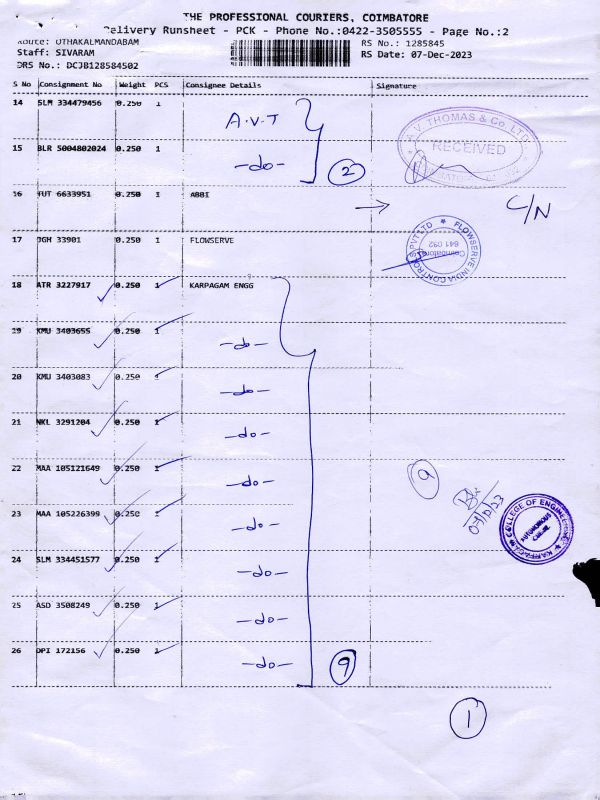 THE PROFESSIONAL COURIERS, COIMBATORE
Delivery Runsheet - PCK - Phone No.:0422-3505555 - Page No.:2
Route: OTHAKALMANDABAM
RS No.: 1285845
Staff: SIVARAM
RS Date: 07-Dec-2023
DRS No.: DCJB128584502
S No Consignment No Weight PCS Consignee Details Signature
14 SLM 334479456 0.250 1 A.V.T
V. THOMAS & Co. LTD.
RECEIVED
15 BLR 5004802024 0.250 1 -do- 2
16 TUT 6633951 0.250 1 ABBI
C/N
17 JGH 33901 0.250 1 FLOWSERVE
FLOWSERVE INDIA CONTROLS PVT LTD
Coimbatore
641 032
18 ATR 3227917 0.250 1 KARPAGAM ENGG
19 KMU 3403655 0.250 1 -do-
20 KMU 3403083 0.250 1 -do-
21 NKL 3291204 0.250 1 -do-
22 MAA 105121649 0.250 1 -do-
9
23 MAA 105226399 0.250 1 -do-
COLLEGE OF ENGINEERING
AUTONOMOUS
24 SLM 334451577 0.250 1 -do-
25 ASD 3508249 0.250 1 -do-
26 OPI 172156 0.250 1 -do- 9
1